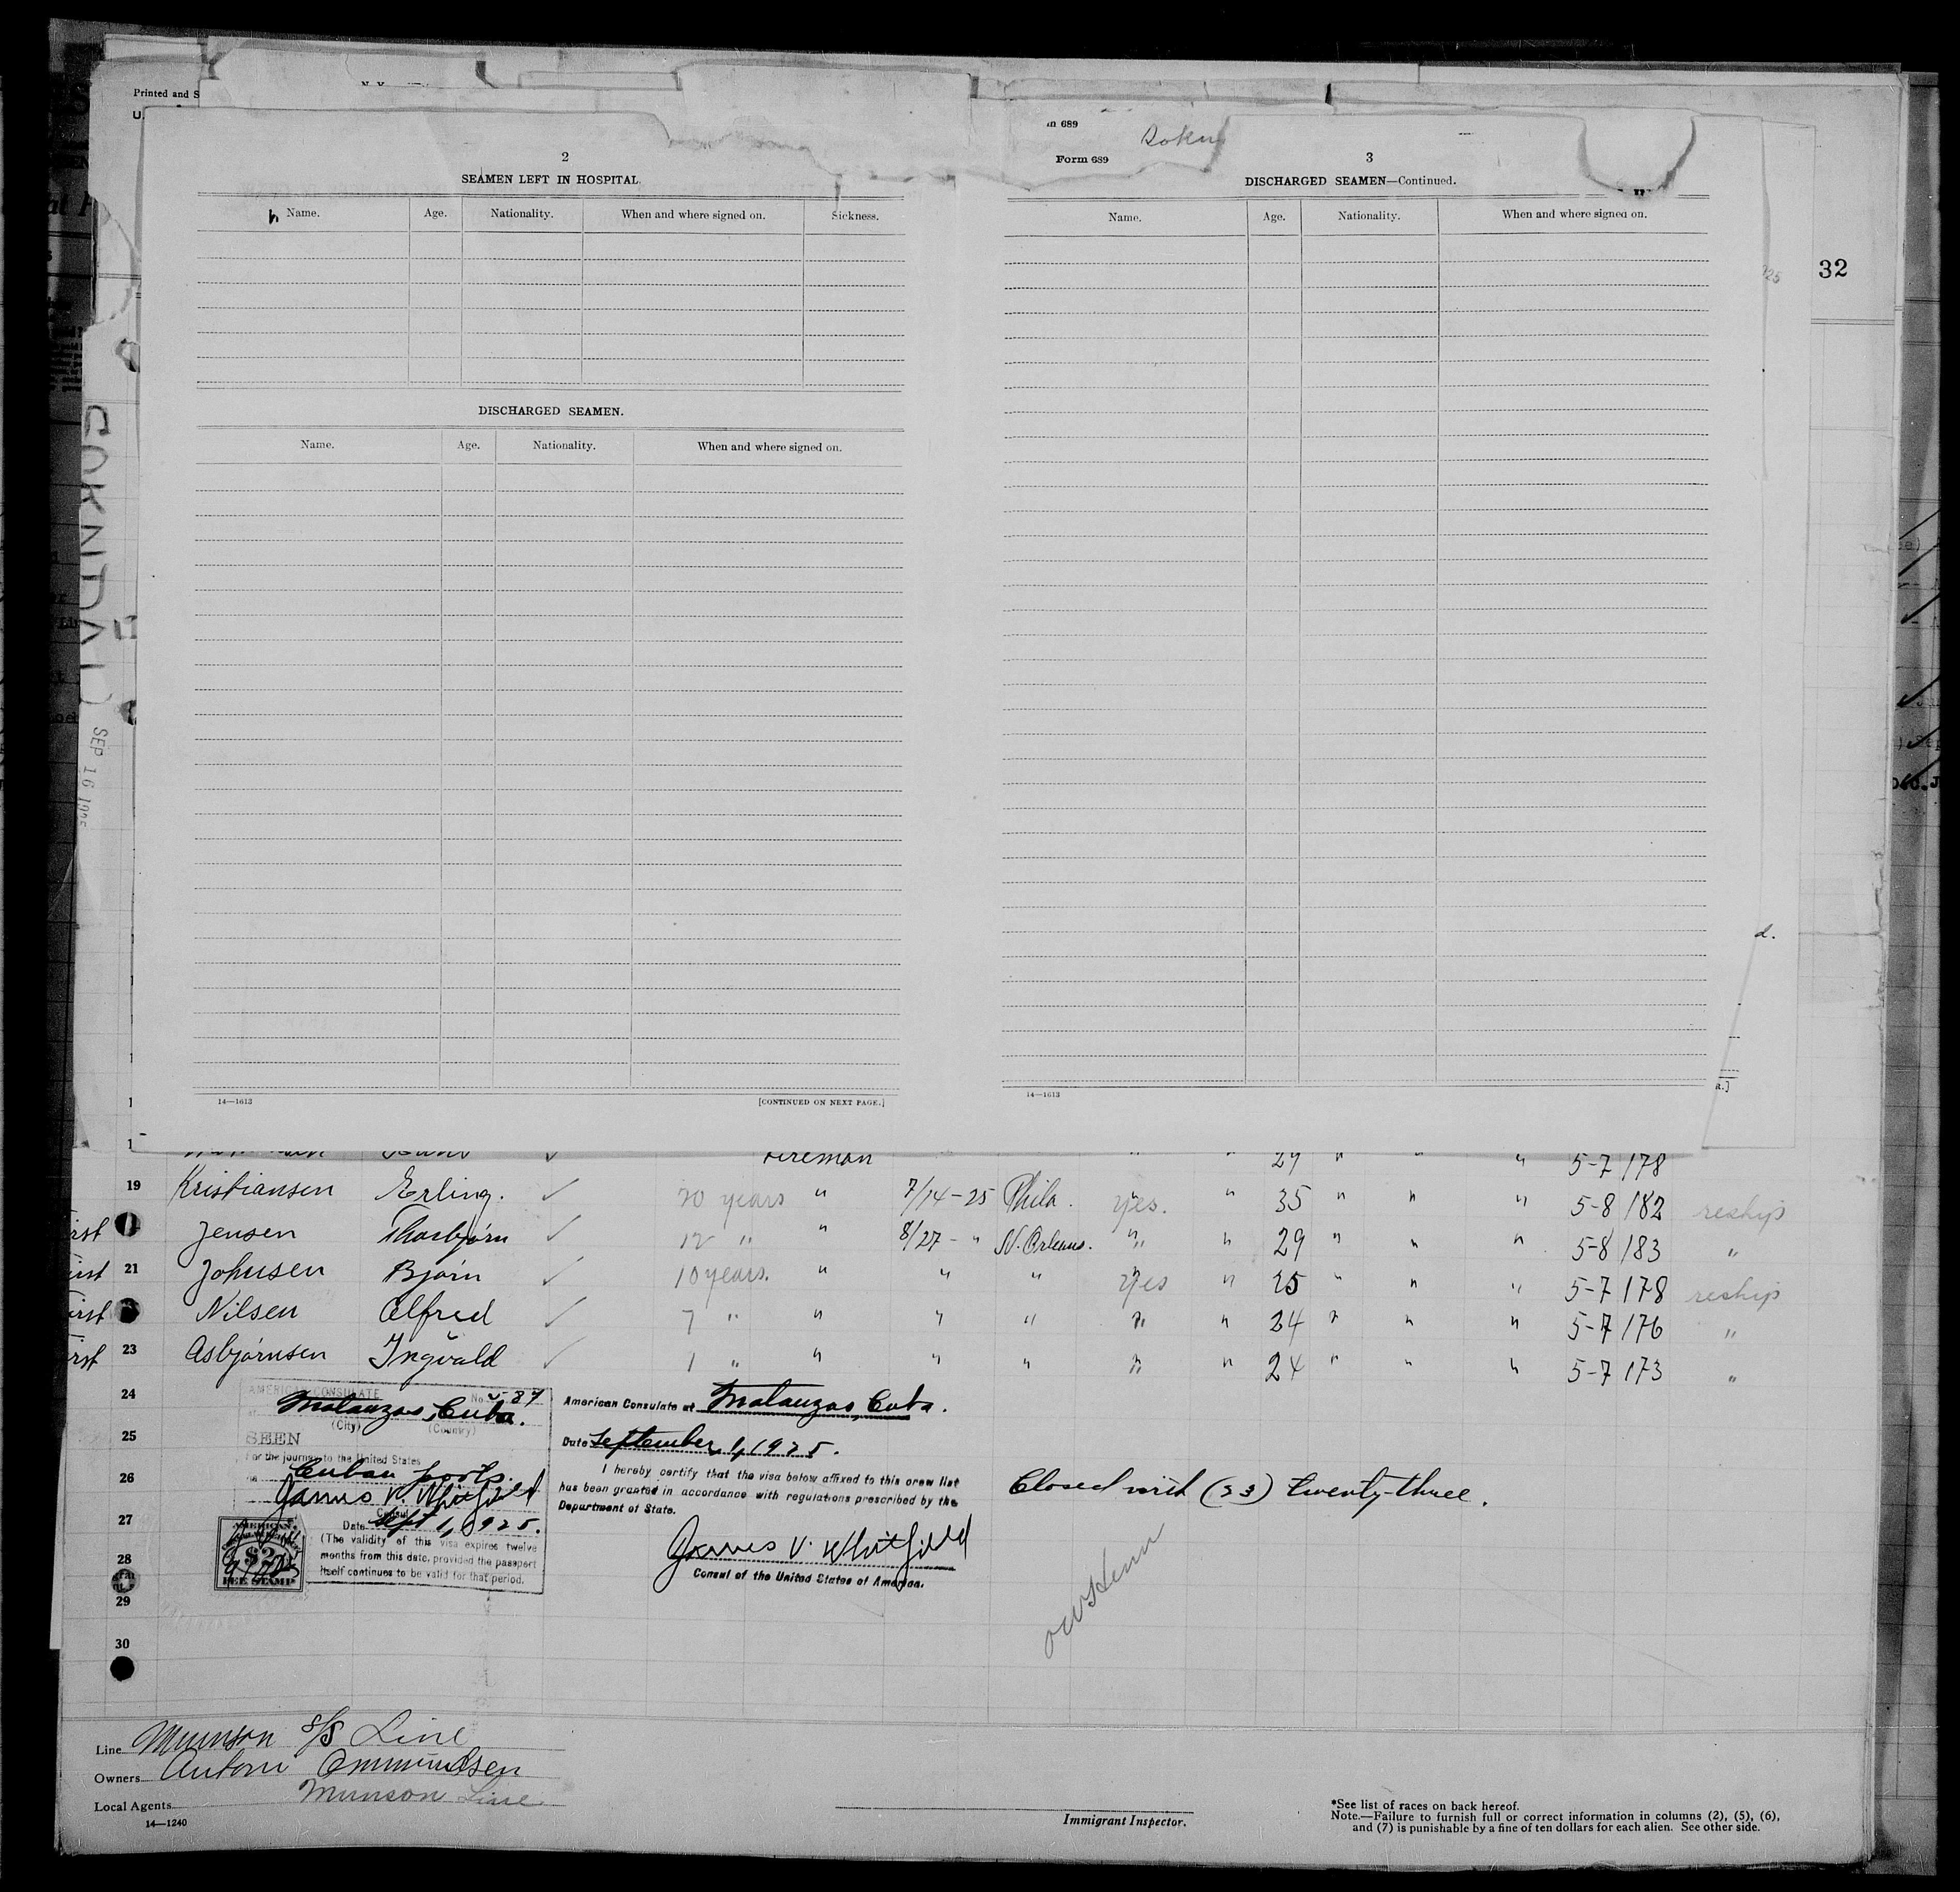 Printed and S
U.
m 689
Form 689
32
2
SEAMEN LEFT IN HOSPITAL
Name. Age. Nationality. When and where signed on. Sickness.
DISCHARGED SEAMEN.
Name. Age. Nationality. When and where signed on.
14—1613 [CONTINUED ON NEXT PAGE.]
3
DISCHARGED SEAMEN—Continued.
Name. Age. Nationality. When and where signed on.
14—1613
d.
a.]
SOKNDAL
SEP 16 1925
Fireman " " 29 " " " 5-7 178
19 Kristiansen Erling. ✓ 20 years " 7/14-25 Phila. yes. " 35 " " " 5-8 182 reship
irst Jensen Thorbjørn ✓ 12 " " 8/27- " N. Orleans. " " 29 " " " 5-8 183 "
irst 21 Johnsen Bjørn ✓ 10 years. " " " yes " 25 " " " 5-7 178 reship
irst Nilsen Alfred ✓ 7 " " " " " " 24 " " " 5-7 176 "
irst 23 Asbjørnsen Ingvald ✓ 1 " " " " " " 24 " " " 5-7 173 "
24
25
26
27
28
29
30
AMERICAN CONSULATE No. 587
Matanzas, Cuba.
(City) (Country)
SEEN
For the journey to the United States
via Cuban ports.
James V. Whitfield
Consul
Date Sept 1, 1925.
(The validity of this visa expires twelve
months from this date, provided the passport
itself continues to be valid for that period.
AMERICAN
$2
FEE STAMP
American Consulate at Matanzas, Cuba.
Date September 1, 1925.
I hereby certify that the visa below affixed to this crew list
has been granted in accordance with regulations prescribed by the
Department of State.
James V. Whitfield
Consul of the United States of America.
Closed with (23) twenty-three.
Line Munson S/S Line
Owners Antoni Ommundsen
Local Agents Munson Line
14—1240
Immigrant Inspector.
*See list of races on back hereof.
Note.—Failure to furnish full or correct information in columns (2), (5), (6),
and (7) is punishable by a fine of ten dollars for each alien. See other side.